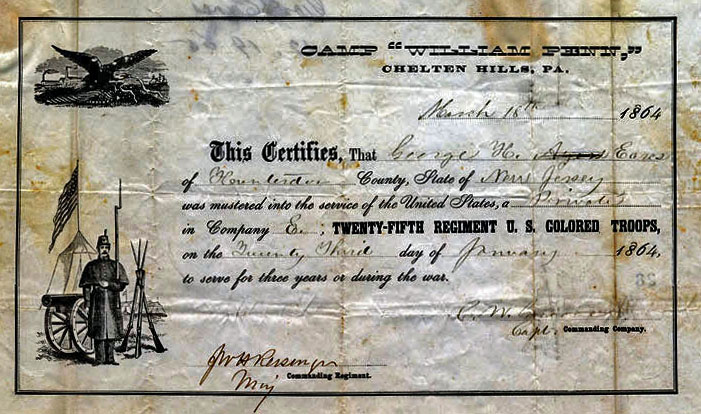 CAMP "WILLIAM PENN,"
CHELTEN HILLS, PA.
March 18th 1864
This Certifies, That George H. Eares
of Hunterdon County, State of New Jersey
was mustered into the service of the United States, a Private
in Company E. ; TWENTY-FIFTH REGIMENT U. S. COLORED TROOPS,
on the Twenty Third day of January 1864,
to serve for three years or during the war.
C. W.
Capt. Commanding Company.
Commanding Regiment.
Maj